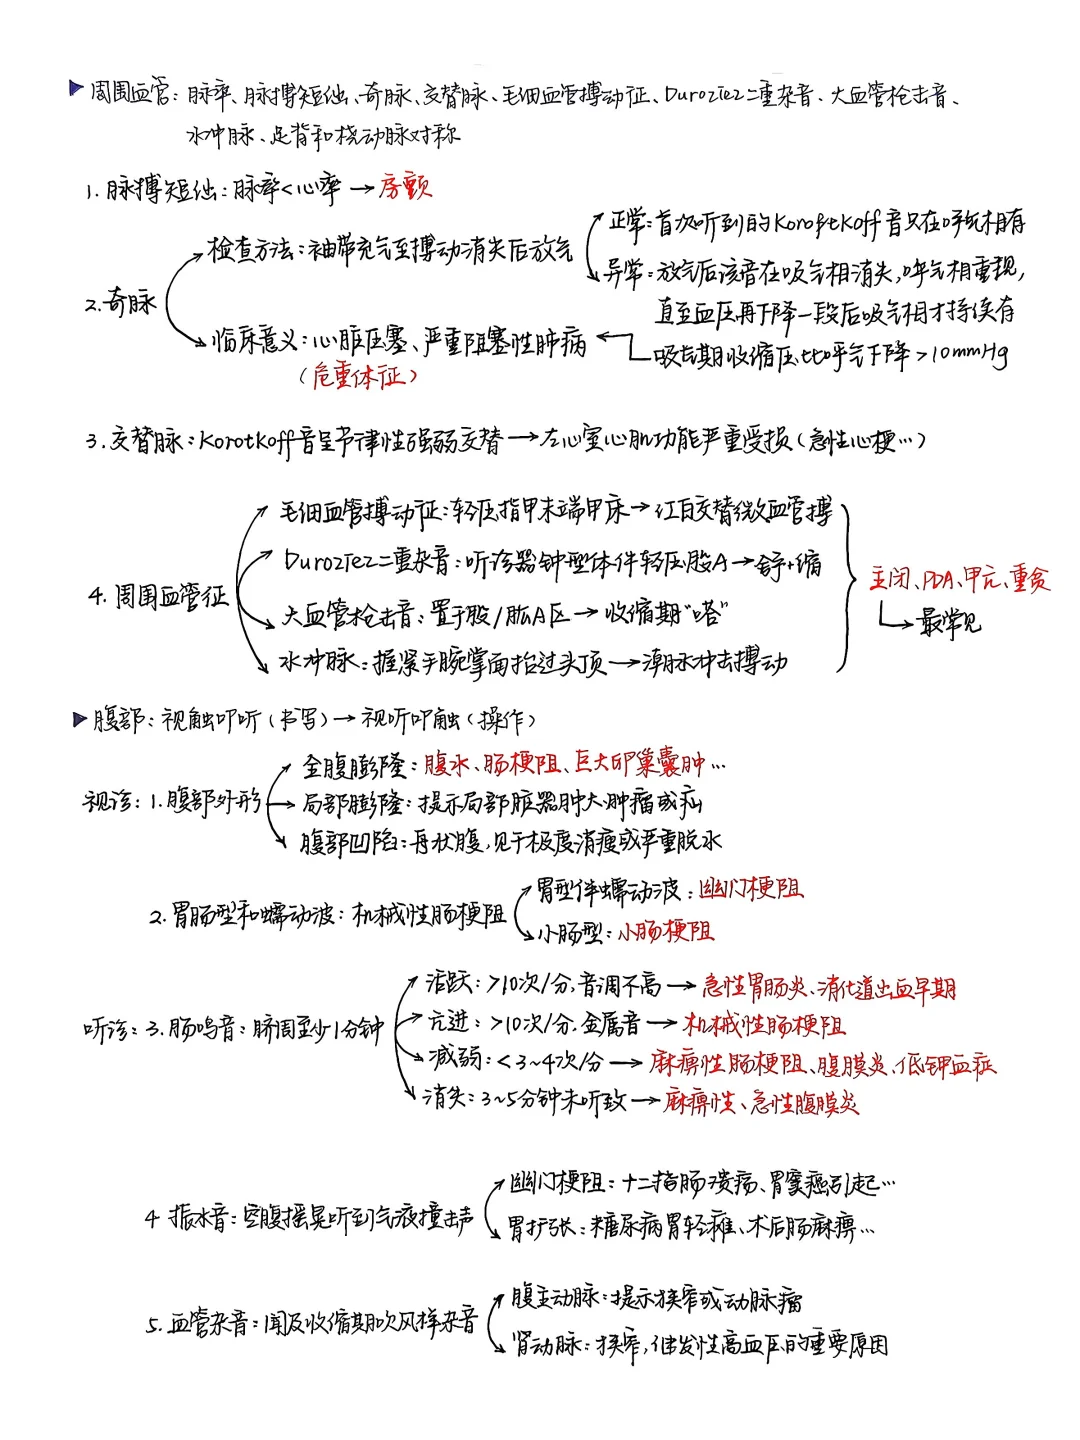 周围血管：脉率、脉搏短绌、奇脉、交替脉、毛细血管搏动征、Duroziez二重杂音、大血管枪击音、
水冲脉、足背和桡动脉对称
1. 脉搏短绌：脉率<心率→房颤
2. 奇脉
检查方法：袖带充气至搏动消失后放气
正常：首次听到的Korotkoff音只在呼气相有
异常：放气后该音在吸气相消失，呼气相重现，
直至血压再下降一段后吸气相才持续有
临床意义：心脏压塞、严重阻塞性肺病
吸气期收缩压比呼气下降>10mmHg
（危重体征）
3. 交替脉：Korotkoff音呈节律性强弱交替→左心室心肌功能严重受损（急性心梗…）
4. 周围血管征
毛细血管搏动征：轻压指甲末端甲床→红白交替微血管搏
Duroziez二重杂音：听诊器钟型体件轻压股A→舒+缩
大血管枪击音：置于股/肱A区→收缩期“嗒”
水冲脉：握紧手腕掌面抬过头顶→潮脉冲击搏动
主闭、PDA、甲亢、重贫
→最常见
腹部：视触叩听（书写）→视听叩触（操作）
视诊：1. 腹部外形
全腹膨隆：腹水、肠梗阻、巨大卵巢囊肿…
局部膨隆：提示局部脏器肿大、肿瘤或疝
腹部凹陷：舟状腹，见于极度消瘦或严重脱水
2. 胃肠型和蠕动波：机械性肠梗阻
胃型伴蠕动波：幽门梗阻
小肠型：小肠梗阻
听诊：3. 肠鸣音：脐周至少1分钟
活跃：>10次/分，音调不高→急性胃肠炎、消化道出血早期
亢进：>10次/分，金属音→机械性肠梗阻
减弱：<3~4次/分→麻痹性肠梗阻、腹膜炎、低钾血症
消失：3~5分钟未听致→麻痹性、急性腹膜炎
4 振水音：空腹摇晃听到气液撞击声
幽门梗阻：十二指肠溃疡、胃窦癌引起…
胃扩张：糖尿病胃轻瘫、术后肠麻痹…
5. 血管杂音：闻及收缩期吹风样杂音
腹主动脉：提示狭窄或动脉瘤
肾动脉：狭窄，继发性高血压的重要原因